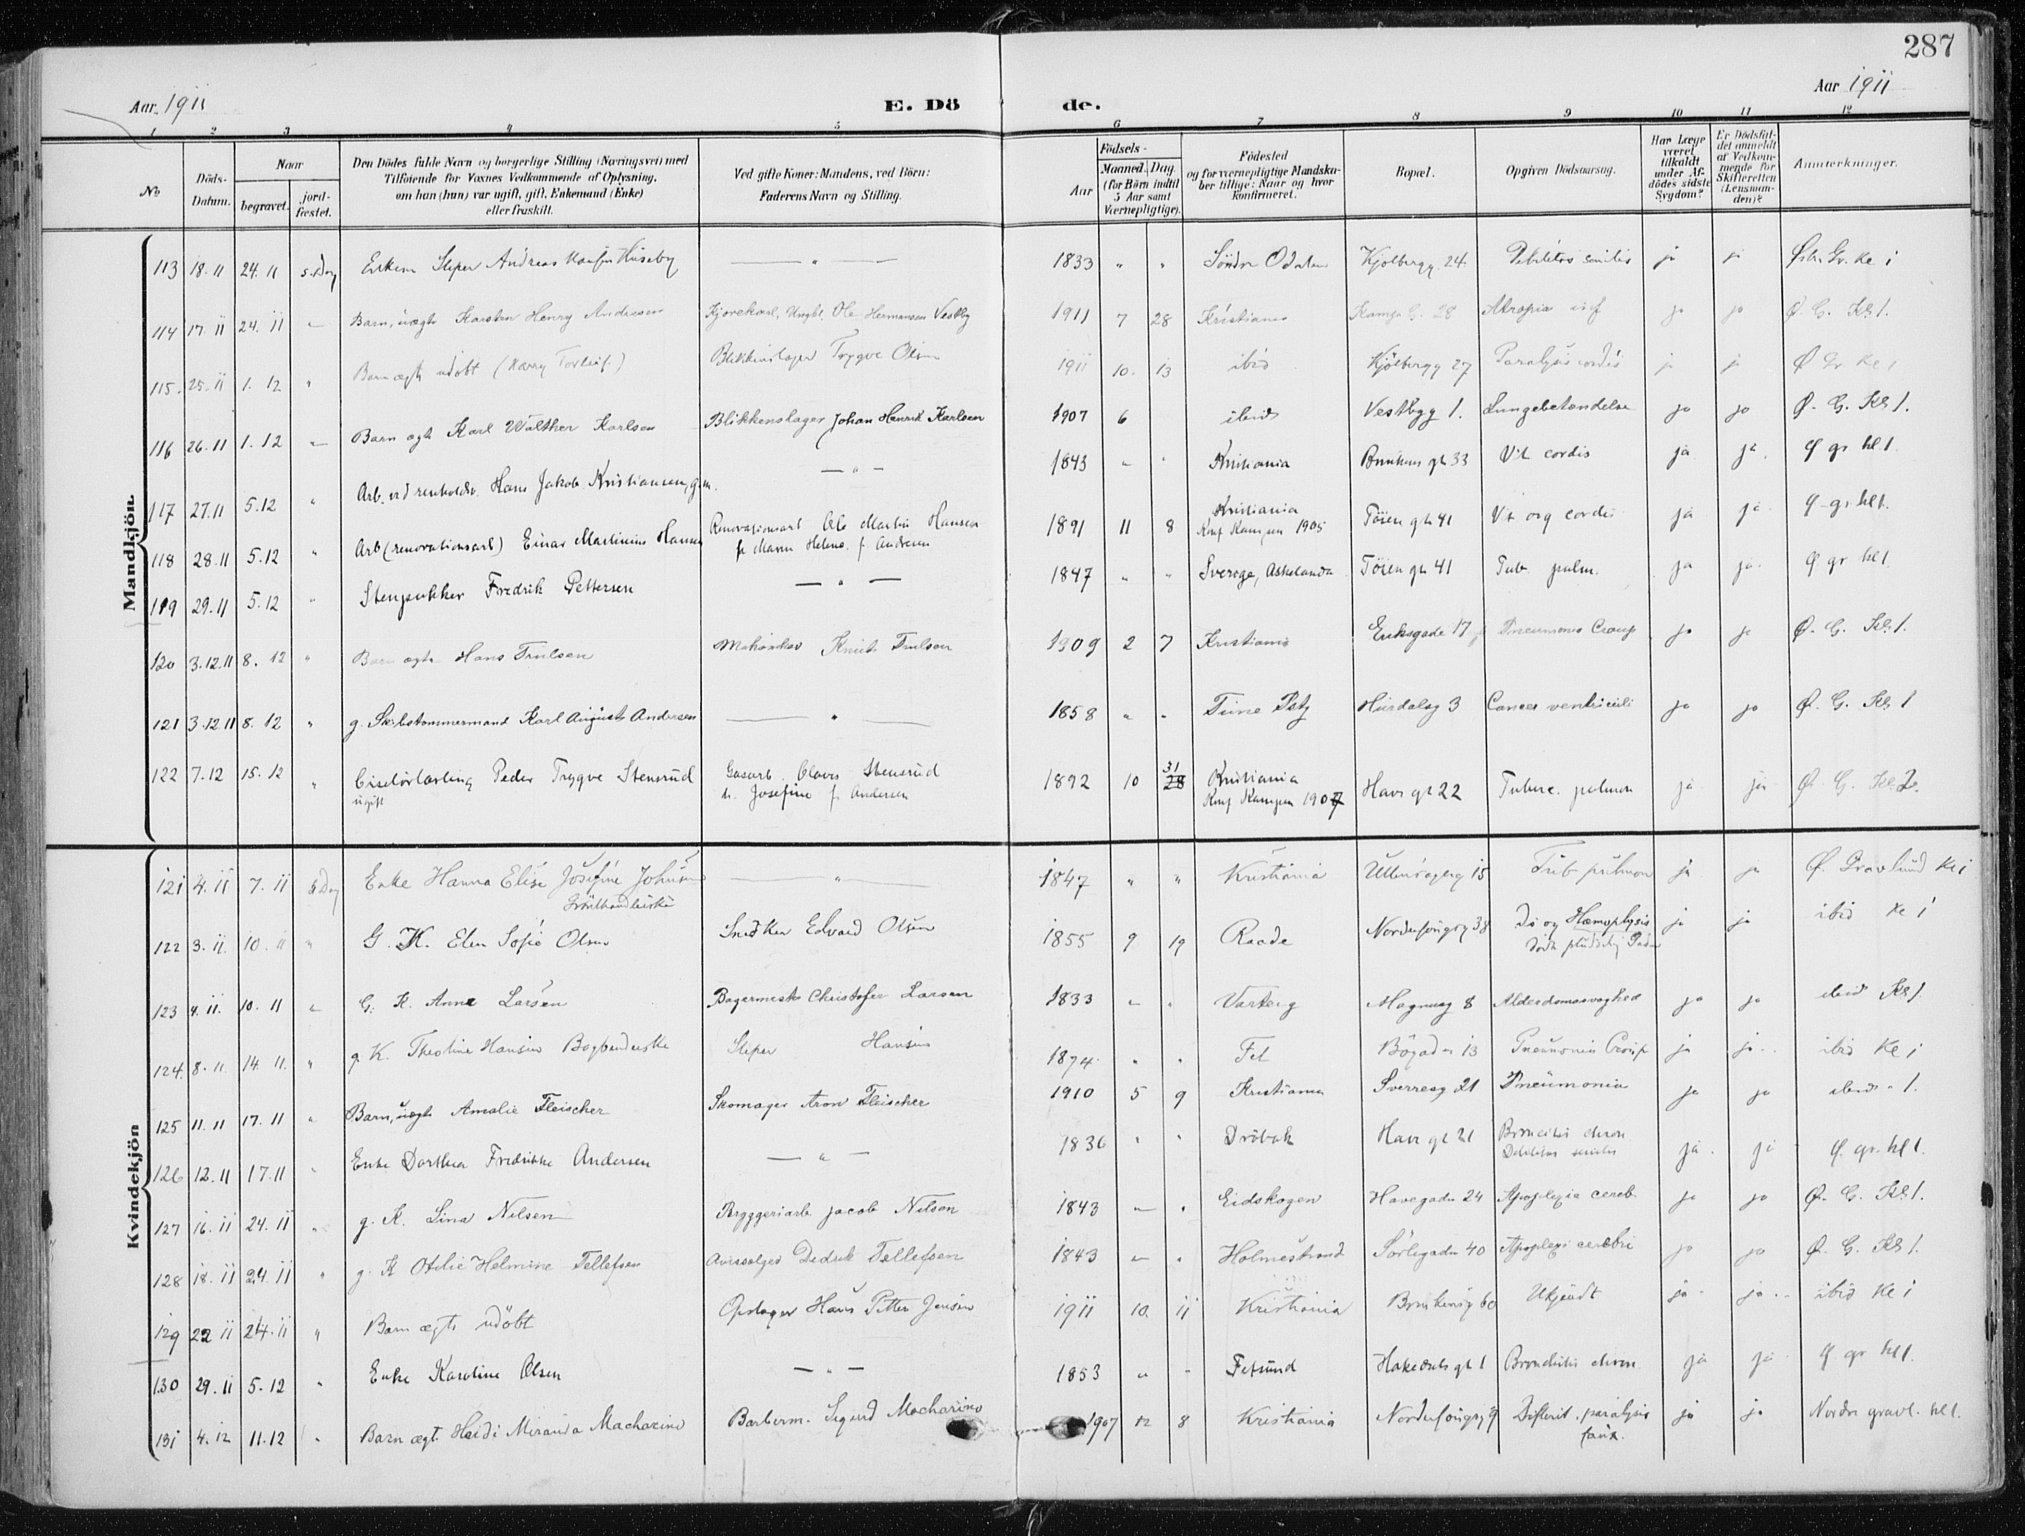 287
Aar 1911 E. Dö de. Aar 1911
1 2 3 4 5 6 7 8 9 10 11 12
No
Döds-Datum.
Naar
begravet.
jord-fæstet.
Den Dödes fulde Navn og borgerlige Stilling (Næringsvei) med
Tilföiende for Voxnes Vedkommende af Oplysning,
om han (hun) var ugift, gift, Enkemand (Enke)
eller fraskilt.
Ved gifte Koner: Mandens, ved Börn:
Faderens Navn og Stilling.
Födsels-
Aar
Maaned. Dag
(for Börn indtil
5 Aar samt
Værnepligtige).
Födested
og for værnepligtige Mandska-
ber tillige: Naar og hvor
konfirmeret.
Bopæl.
Opgiven Dödsaarsag.
Har Læge
været
tilkaldt
under Af-
dödes sidste
Sygdom?
Er Dödsfal-
det anmeldt
af Vedkom-
mende for
Skifteretten
(Lensman-
den)?
Anmærkninger.
Mandkjön
113 18.11 24.11 s. Dag Enkem Sliper Andreas Huseby — " — 1833 " " Söndre Odalen Kjölbergg. 24. Debilitas senilis ja ja Østr. Gr. Kl 1
114 17.11 24.11 " Barn, uægte Karsten Henry Andresen Kjørekarl, Ungk. Ole Hermansen Vestby 1911 7 28 Kristiania Kampg. 28 Atropia inf ja ja Ø. G. Kl. 1.
115. 25.11 1.12 " Barn ægte udöbt (Harry Torleif) Blikkenslager Trygve Olsen 1911 10. 13 ibid Kjölbergg 27 Paralysis cordis ja ja Ø Gr Kl 1
116 26.11 1.12 " Barn ægte Karl Walther Karlsen Blikkenslager Johan Henrik Karlsen 1907 6 ibid Vestbyg 1. Lungebetændelse ja ja Ø. G. Kl. 1.
117 27.11 5.12 " Arb. ved renholdsv. Hans Jakob Kristiansen, g.m. — " — 1843 " " Kristiania gt 33 Vit cordis ja ja. Ø gr kl 1.
118 28.11 5.12 " Arb (renovationsarb) Einar Martinius Hansen Renovationsarb Ole Martin Hansen 1891 11 8 Kristiania Töien gt 41 Vit org cordis ja ja. Ø gr. kl 1.
Helene f. Andresen Konf Kampen 1905
119 29.11 5.12 " Stenpukker Fredrik Pettersen — " — 1847 " " Sverige, Töien gt 41 Tub. pulm. ja ja. Ø gr kl 1.
120 3.12.11 8.12 " Barn ægte Hans Trulsen Knut Trulsen 1909 2 7 Kristiania Eriksgade 17 Pneumonia Croup ja ja Ø. G. Kl. 1.
121 3.12.11 8.12 " g. Skibstommermand Karl August Andersen — " — 1858 " " Tune Hurdalsg 3 Cancer ventriculi ja ja Ø. G. Kl. 1
122 7.12 15.12 " Ciselörlærling Peder Trygve Stensrud Gasarb. Olaves Stensrud 1892 10 31 28 Kristiania Havegt 22 Tuberc. pulmon ja ja Ø. G. Kl. 2.
ugift h. Josefine f. Andersen Konf Kampen 1907
Kvindekjön
121 4.11 7.11 s Dag Enke Hanna Elise Josefine Johnsen — " — 1847 " " Kristiania 15 Tub pulmon ja ja Ø. Gravlund Kl 1
Grönthandlerske
122 3.11. 10.11 " G. K. Elen Sofie Olsen Snedker Edvard Olsen 1855 9 19 Raade 38 Hæmoptysis ja ja ibid Kl 1
123 4.11. 10.11 " G. K. Anne Larsen Bagermester Christofer Larsen 1833 " " Varteig Magnusg 8 Alderdomssvaghed ja ja ibid Kl 1.
124. 8.11. 14.11. " g. K. Theoline Hansen Bogbinderske Sliper Hansen 1874 " " Fet Bögaden 13 Pneumonia Croup ja ja. ibid Kl 1
125 11.11 17.11 " Barn, uægte Amalie Fleischer Skomager Aron Fleischer 1910 5 9 Kristiania Sverresg 21 Pneumonia ja ja ibid " 1.
126 12.11 17.11 " Enke Dorthea Fredrikke Andersen — " — 1836 " " Dröbak Havegt 21 Broncitis chron ja. ja Ø. gr. kl 1.
Debilitas senilis
127 16.11 24.11 " g. K. Lina Nilsen Bryggeriarb Jacob Nilsen 1843 " " Eidskogen Havegaden 24 Apoplexia cereb. ja ja Ø. G. Kl. 1.
128 18.11 24.11 " g. K Otilie Helmine Tellefsen Avissælger Didrik Tellefsen 1843 " " Holmestrand Sörligaden 40 Apoplexi cerebri ja ja Ø. G. Kl 1.
129 22 11 24.11 " Barn ægte udöbt Opslager Hans Petter Jensen 1911 10. 11 Kristiania 60 Ukjendt ja. ja. ibid Kl 1
130 29.11 5.12 " Enke Karoline Olsen — " — 1853 " " Fetsund Hakedals gt 1 Bronchitis chron. ja ja Ø gr kl 1.
131 4.12 11.12 " Barn ægt. Heidi Miranda Macharino Barberm. Sigurd Macharino 1907 12 8 Kristiania 9 Difterit. paralysis ja ja Nordre gravl. kl 1.